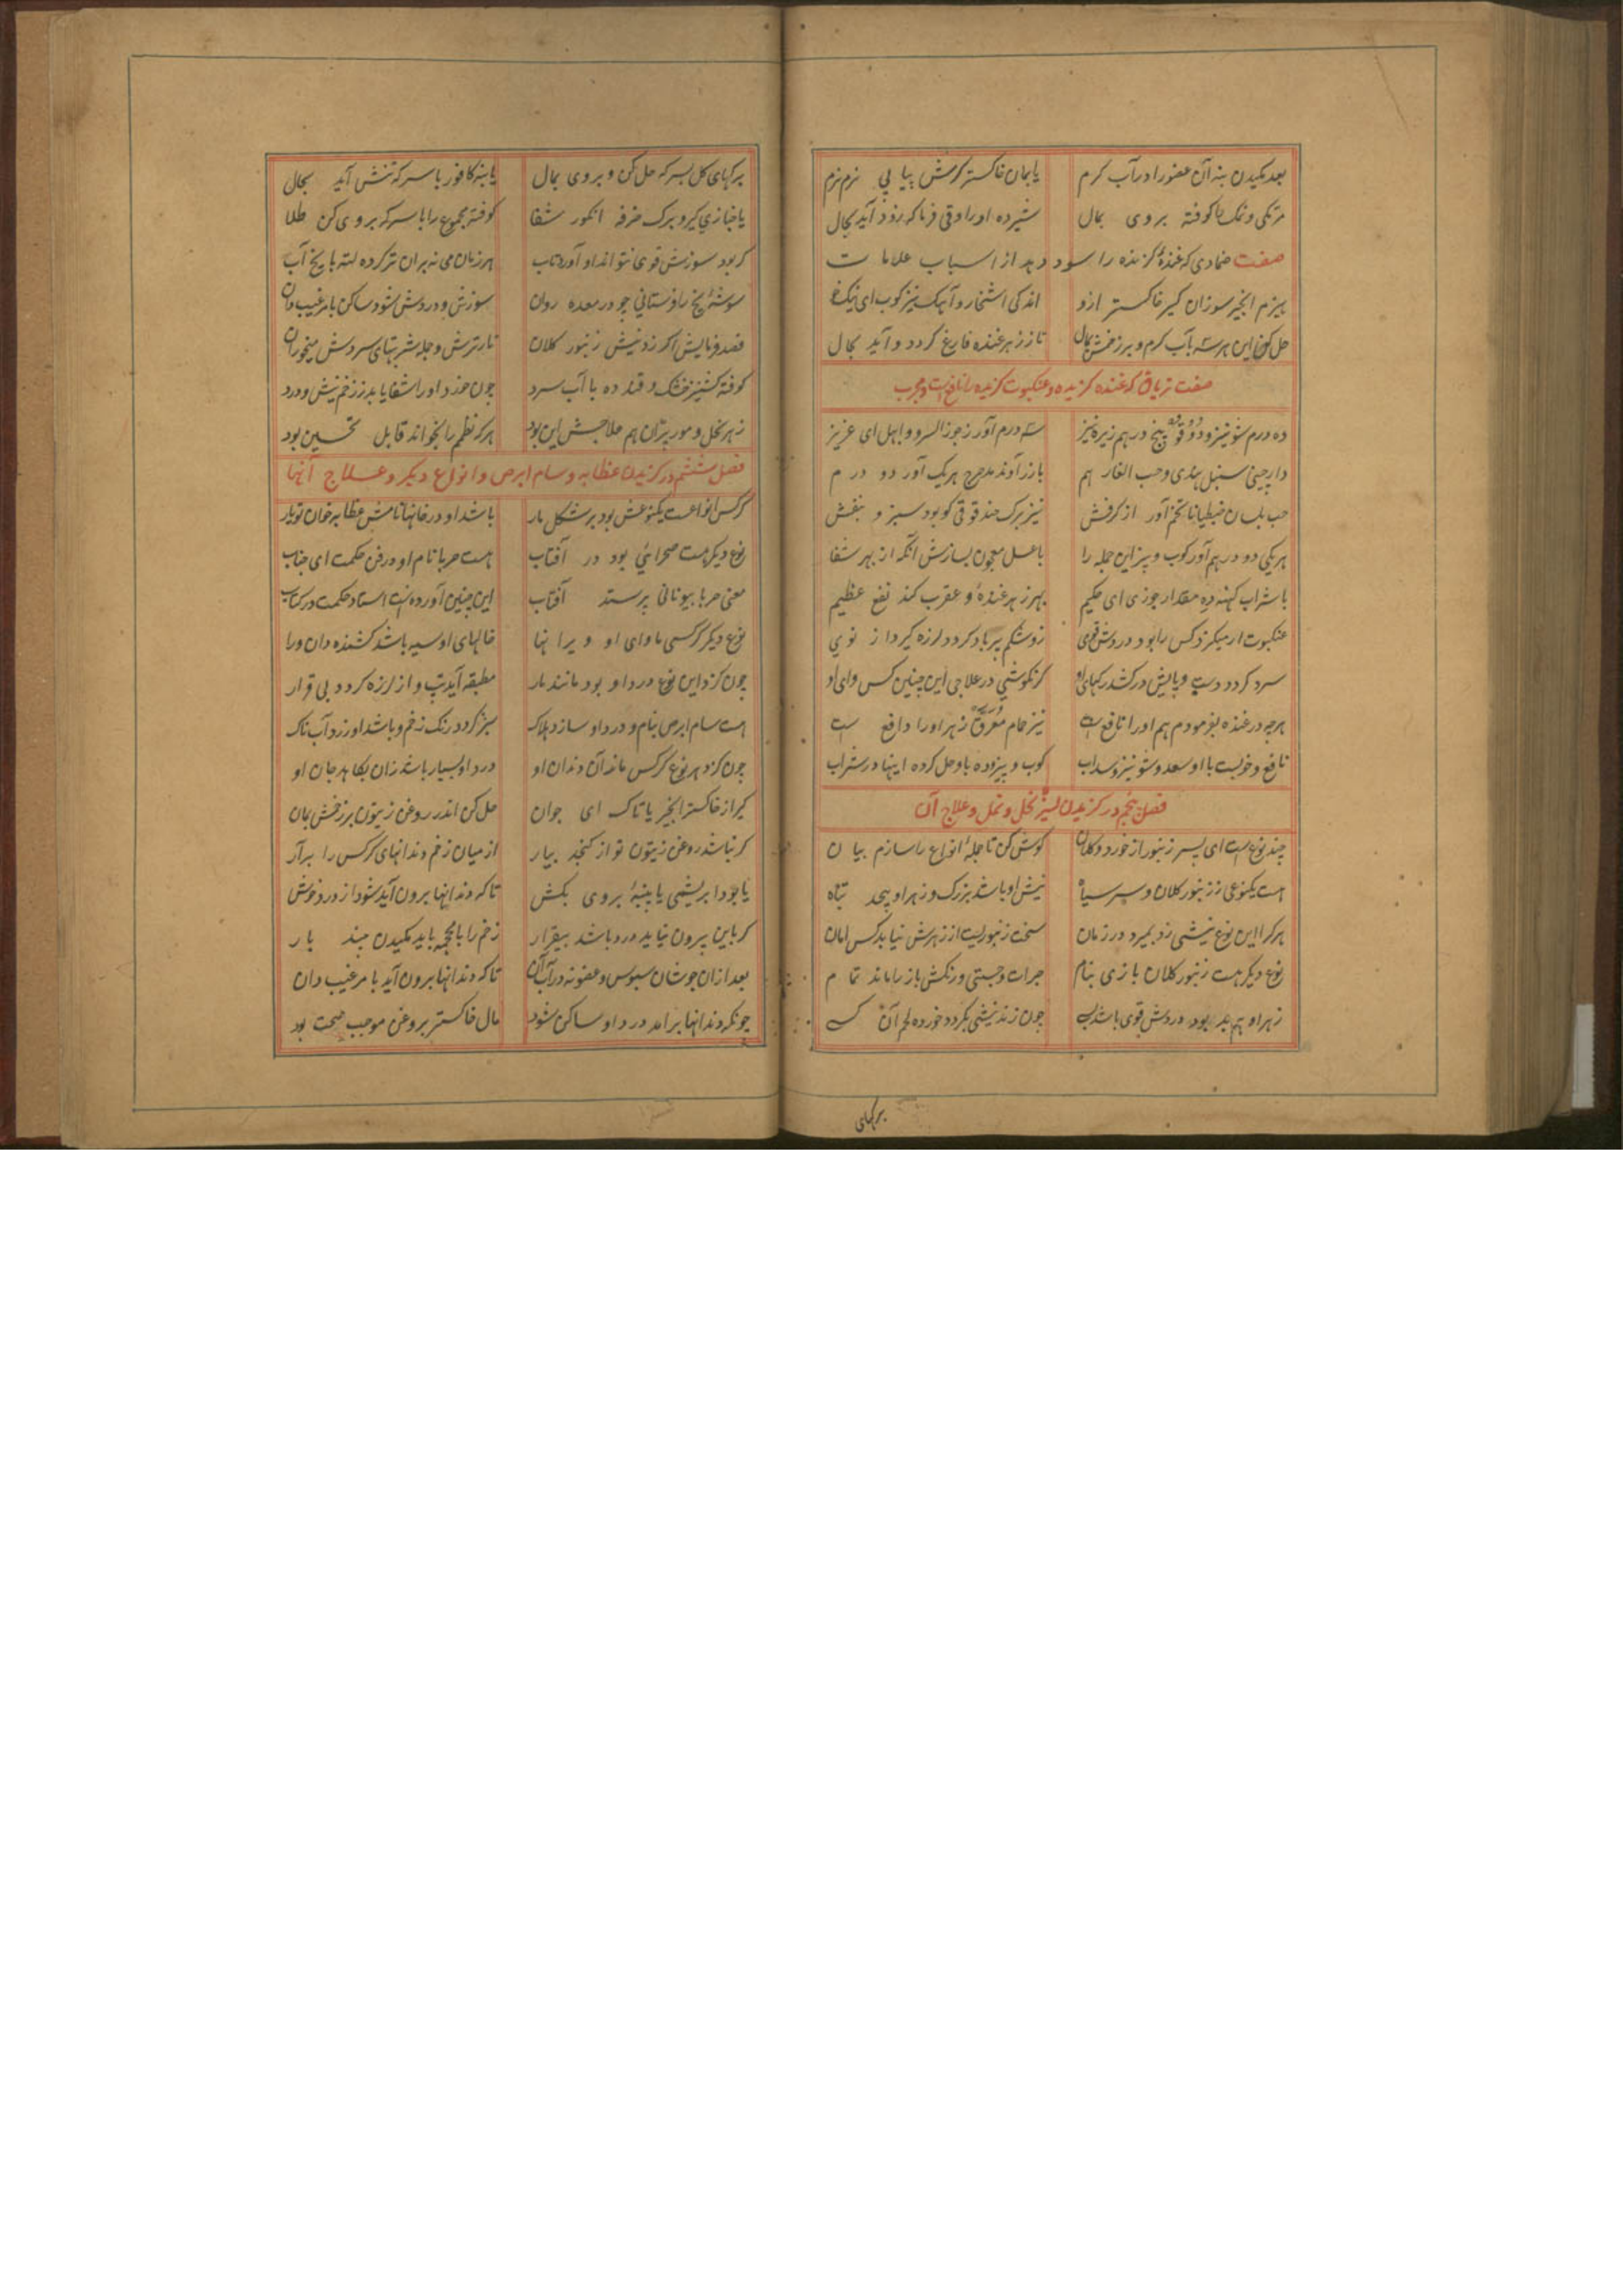 بعد مکیدن بنه آن عضو را در آب کرم یا بمان خاکستر کرمش پیا پی نرم نرم
مرتکی و نمک را کوفته بروی بمال شیر ده او را وقی فرما که زود آید بحال
صفت ضمادی که غنده کزنده را سود دهد از اسباب علامات
هیزم انجیر سوزان کیر خاکستر ازو اندکی اشخار و آهک نیز کوب ای نیک
حل کن این هر سه بآب کرم و بر زخمش بمال تا ز زهر غنده فارغ کردد و آید بحال
صفت تریاق که غنده کزیده و عنکبوت کزیده را نافع است و مجرب
ده درم شونیز و دوقو پنج درهم زیره نیز سه درم آور ز جوز السرو و ابهل ای عزیز
دارچینی سنبل هندی و حب الغار هم باز زراوند مدحرج هریک آور دو درم
حب بلسان جنطیانا تخم آور از کرفش نیز برک حندقوقی کو بود سبز و بنفش
هریکی دو درهم آور کوب و بیز این جمله را با عسل معجون بسازش آنکه از بهر شفا
با شراب کهنه ده مقدار جوزی ای حکیم بهر زهر غنده و عقرب کند نفع عظیم
عنکبوت ار میکزد کس را بود دردش قوی زو شکم پر باد کردد لرزه کیرد از نوی
سرد کردد دست و پایش درکشد رکهای او کر نکوشی در علاجی این چنین کس وای او
هرچه در غنده بفرمودم هم او را نافع است نیز حمام معرق زهر او را دافع است
نافع و خوبست با او سعد و شونیز و سداب کوب و بیز و ده با و حل کرده اینها در شراب
فصل پنجم در کزیدن نحل و نمل و علاج آن
چند نوع است ای پسر زنبور از خورد و کلان کوش کن تا جمله انواع را سازم بیان
هست یکنوعی ز زنبور کلان و سر سیاه نیش او باشد بزرک و زهر او بیحد تباه
هر کرا این نوع نیشی زد بمیرد در زمان سخت زنبوریست از زهرش نیابد کس امان
نوع دیکر هست زنبور کلان بازی بنام جرات و چستی و رنکش باز را ماند تمام
زهر او هم بد بود دردش قوی باشد چون زند نیشی بکردد خورده لحم آن کسی
برکهای
برکهای کل بسرکه حل کن و بروی بمال یا بنه کافور با سرکه تنش آید بحال
یا خبازی کیر و برک خرفه انکور شفا کوفته مجموع را با سرکه بروی کن طلا
کر بود سوزش قوی نتواند او آورد تاب هر زمان می نه بران تر کرده لته با یخ آب
سوزش و دردش شود ساکن
فصد فرمایش اکر زد نیش زنبور کلان نار ترش و جمله شربتهای سردش میخوران
کوفته کشنیز خشک و قند ده با آب سرد چون خورد او را شفا یابد ز زخم نیش و درد
زهر نحل و مور پران هم علاجش این بود هر که نظم را بخواند قابل تحسین بود
فصل ششم در کزیدن عظایه و سام ابرص و انواع دیکر و علاج آنها
کرکس انواعست یکنوعش بود بر شکل مار باشد او در خانها نامش عظایه خوان تو یار
نوع دیکر هست صحرائی بود در آفتاب هست حربا نام او در فن حکمت ای جناب
معنی حربا بیونانی پرستد آفتاب این چنین آورده است استاد حکمت در کتاب
نوع دیکر کرکسی ماوای او ویرانها خالهای او سیه باشد کشنده دان ورا
چون کزد این نوع درد او بود مانند مار مطبقه آید تب و از لرزه کردد بی قرار
هست سام ابرص بنام و درد او سازد هلاک سبز کردد رنک زخم و باشد او زردآب ناک
چون کزد هر نوع کرکس ماند آن دندان او درد او بسیار باشد زان بکاهد جان او
کیر از خاکستر انجیر یا تاک ای جوان حل کن اندر روغن زیتون بر زخمش بمان
کر نباشد روغن زیتون تو از کنجد بیار از میان زخم دندانهای کرکس را برآر
یا بود ابریشمی یا پنبه بروی بکش تا که دندانها برون آید شود از درد خوش
کر باین بیرون نیاید درد باشد بیقرار زخم را با محجمه باید مکیدن چند بار
بعد ازان جوشان سبوس و عضو نه در آب آن تا که دندانها برون آید
چونکه دندانها برآمد درد او ساکن شود مال خاکستر بروغن موجب صحت بود